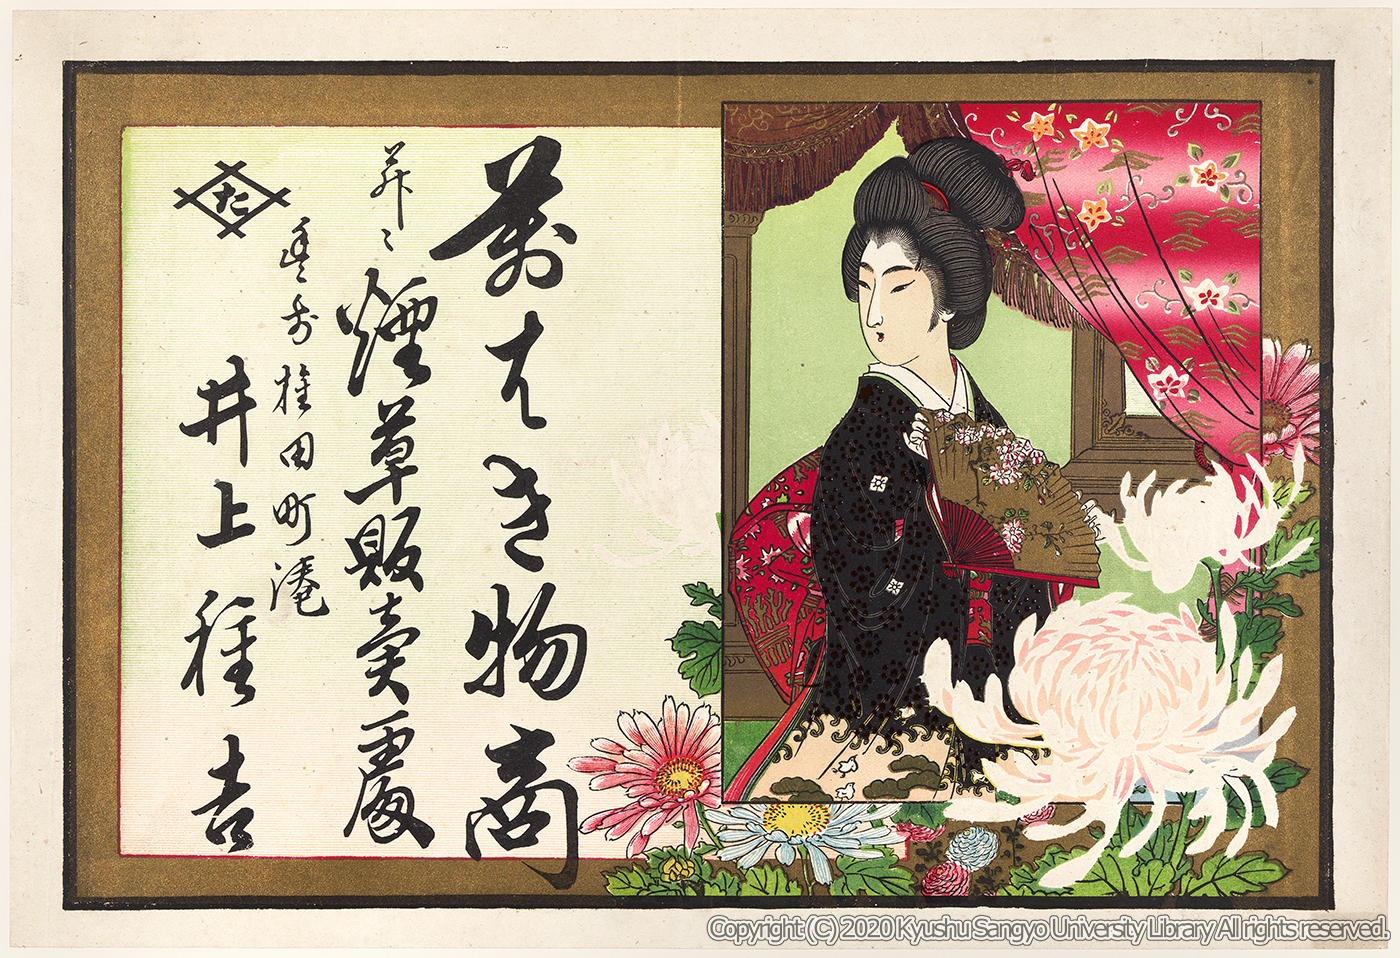 萬はき物商
并ニ
煙草販賣處
豊前椎田町湊
井上種吉
た
Copyright (C) 2020 Kyushu Sangyo University Library All rights reserved.